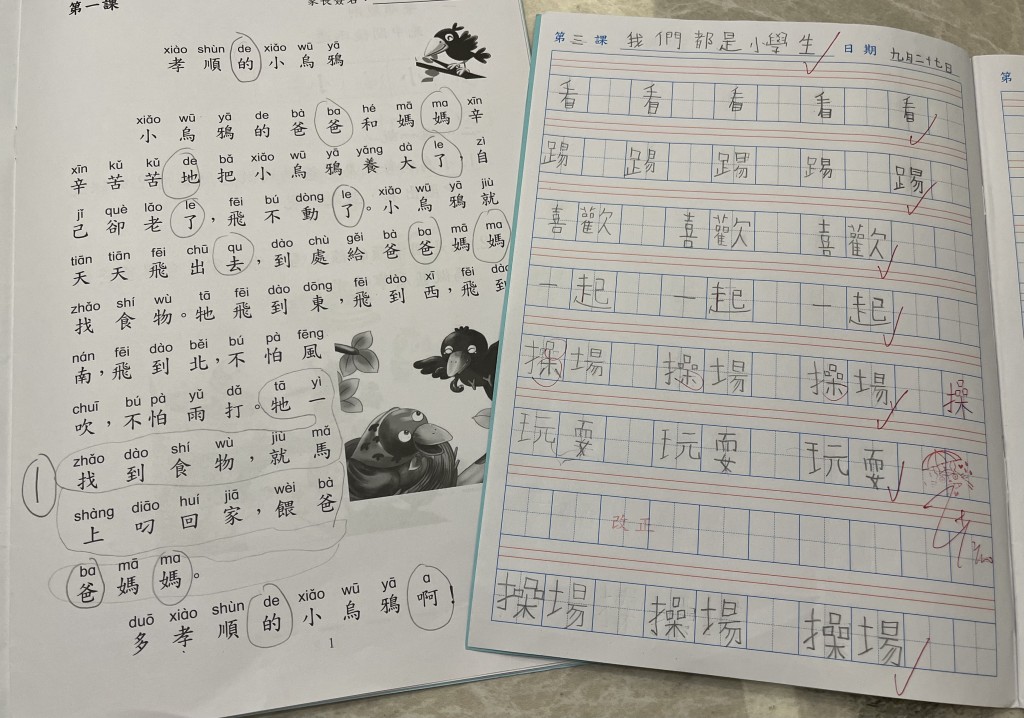 第一課
家長簽名：
xiào shùn de xiǎo wū yā
孝順的小烏鴉
xiǎo wū yā de bà ba hé mā ma xīn
小烏鴉的爸爸和媽媽辛
xīn kǔ kǔ de bǎ xiǎo wū yā yǎng dà le zì
辛苦苦地把小烏鴉養大了，自
jǐ què lǎo le fēi bú dòng le xiǎo wū yā jiù
己卻老了，飛不動了。小烏鴉就
tiān tiān fēi chū qu dào chù gěi bà ba mā ma
天天飛出去，到處給爸爸媽媽
zhǎo shí wù tā fēi dào dōng fēi dào xī fēi dào
找食物。牠飛到東，飛到西，飛到
nán fēi dào běi bú pà fēng
南，飛到北，不怕風
chuī bú pà yǔ dǎ tā yì
吹，不怕雨打。牠一
zhǎo dào shí wù jiù mǎ
找到食物，就馬
shàng diāo huí jiā wèi bà
上叼回家，餵爸
ba mā ma
爸媽媽。
duō xiào shùn de xiǎo wū yā a
多孝順的小烏鴉啊！
1
1
第三課 我們都是小學生 日期 九月二十七日
看 看 看 看 看
踢 踢 踢 踢 踢
喜歡 喜歡 喜歡
一起 一起 一起
操場 操場 操場 操
玩耍 玩耍 玩耍
改正
操場 操場 操場
第